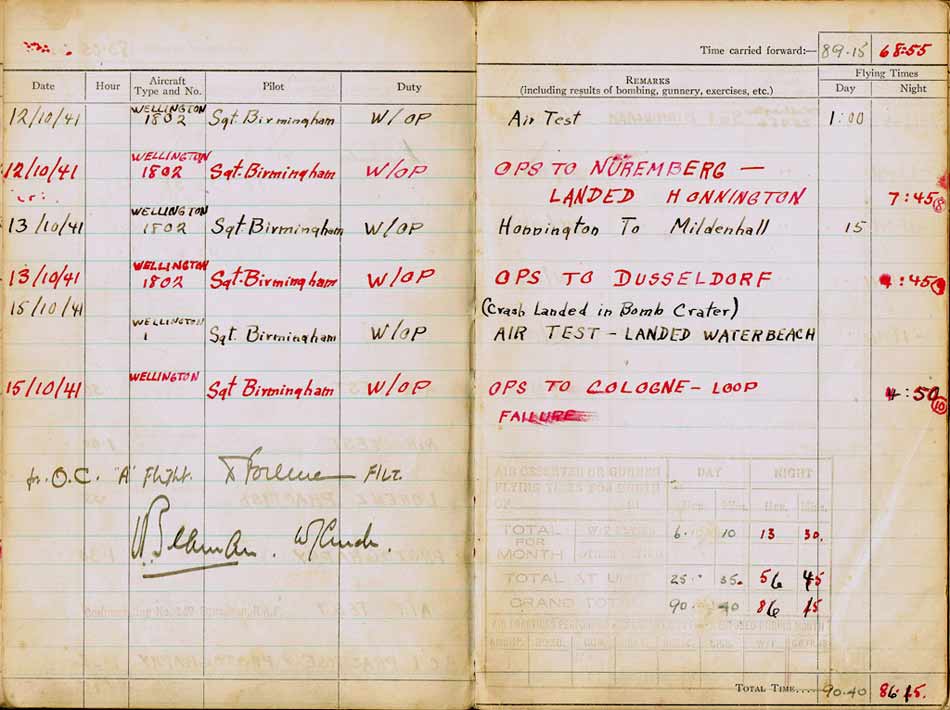 Time carried forward:— 89·15 68:55
Date Hour Aircraft Type and No. Pilot Duty REMARKS (including results of bombing, gunnery, exercises, etc.) Flying Times Day Night
12/10/41 WELLINGTON 1802 Sgt. Birmingham W/OP Air Test 1:00
12/10/41 WELLINGTON 1802 Sgt. Birmingham W/OP OPS TO NÜREMBERG —
LANDED HONNINGTON 7:45 8
13/10/41 WELLINGTON 1802 Sgt Birmingham W/OP Honnington To Mildenhall 15
13/10/41 WELLINGTON 1802 Sgt. Birmingham W/OP OPS TO DUSSELDORF :45 9
15/10/41 (Crash Landed in Bomb Crater)
WELLINGTON 1 Sgt. Birmingham W/OP AIR TEST – LANDED WATERBEACH
15/10/41 WELLINGTON Sgt Birmingham W/OP OPS TO COLOGNE – LOOP 4:50 10
FAILURE
for O.C. "A" Flight. F/Lt.
AIR OBSERVER OR GUNNER DAY NIGHT
FLYING TIMES FOR MONTH
Hrs. Mins. Hrs. Mins.
TOTAL FOR MONTH 6 10 13 30.
TOTAL AT UNIT 25 35. 56 45
GRAND TOTAL 90 40 86 15
TOTAL TIME.... 90.40 86.15.